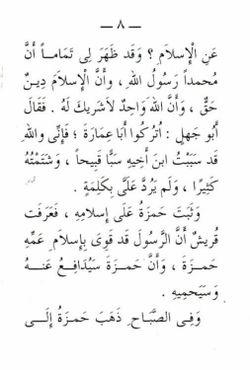 — ٨ —
عَنِ الْإِسلَامِ ؟ وَقَد ظَهَرَ لِى تَمَاماً أَنَّ
مُحمداً رَسُولُ اللهِ ، وأَنَّ الْإِسلَامَ دِينٌ
حَقٌّ ، وَأَنَّ اللهَ وَاحِدٌ لَا شَرِيكَ لَهُ . فَقَالَ
أَبو جَهلٍ : اُترُكُوا أَبَا عِمَارَةَ ؛ فَإِنِّى واللهِ
قَد سَبَبْتُ ابنَ أَخِيهِ سَبًّا قَبِيحاً ، وَشَتَمْتُهُ
كَثِيرًا ، وَلَم يَرُدَّ عَلَىَّ بِكَلِمَةٍ .
وَثَبَتَ حَمزَةُ عَلَى إِسلامِهِ ، فَعَرَفَت
قُرَيشٌ أَنَّ الرَّسُولَ قَد قَوِىَ بِإِسلَامِ عَمِّهِ
حَمزَةَ ، وَأَنَّ حَمـزَةَ سَيُدَافِعُ عَنـهُ
وَسَيَحمِيهِ .
وَفِى الصَّبَاحِ ذَهَبَ حَمزَةُ إِلَـى